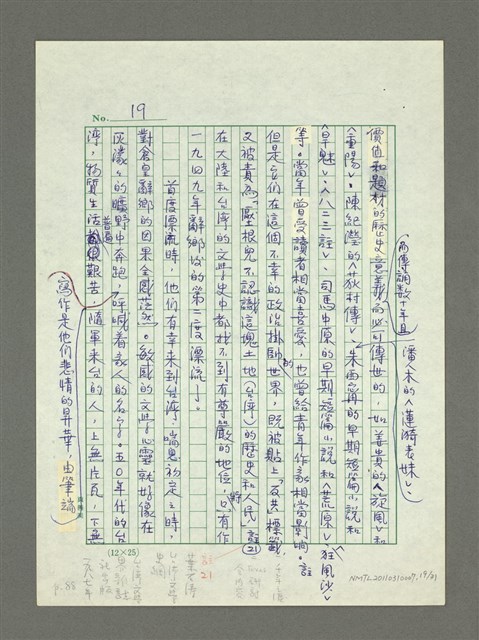 No. 19
價值和題材的歷史意義而必可傳世的,如姜貴的〈旋風〉和
(而傳誦數十年且
潘人木的〈蓮漪表妹〉、
〈重陽〉、陳紀瀅的〈荻村傳〉、朱西甯的早期短篇小說和
〈旱魃〉、〈八二三註〉、司馬中原的早期短篇小說和〈荒原〉、〈狂風沙〉
等。當年曾受讀者相當喜愛,也曾給青年作家相當影响。註
但是他們在這個不幸的政治掛帥的世界,既被貼上「反共」標籤,
又被責為「壓根兒不認識這塊土地(台灣)的歷史和人民」註(21)
在大陸和台灣的文學史中都找不到有尊嚴的地位,只有作
一九四九年辭鄉後的第二度漂流了。
首度漂流時,他們有幸來到台灣,喘息初定之時,
對倉皇辭鄉的因果全感茫然。敏感的文學心靈就好像在
灰濛濛的曠野中奔跑,呼喊着衆人的名字。五〇年代的台
灣,物質生活普遍艱苦,隨軍來台的人,上無片瓦,下無
寫作是他們悲情的昇華,由筆端
(12×25)
註
21
葉石濤
台灣文學
史綱
一九八七年
P. 88
NMTL20110310007, 19/31